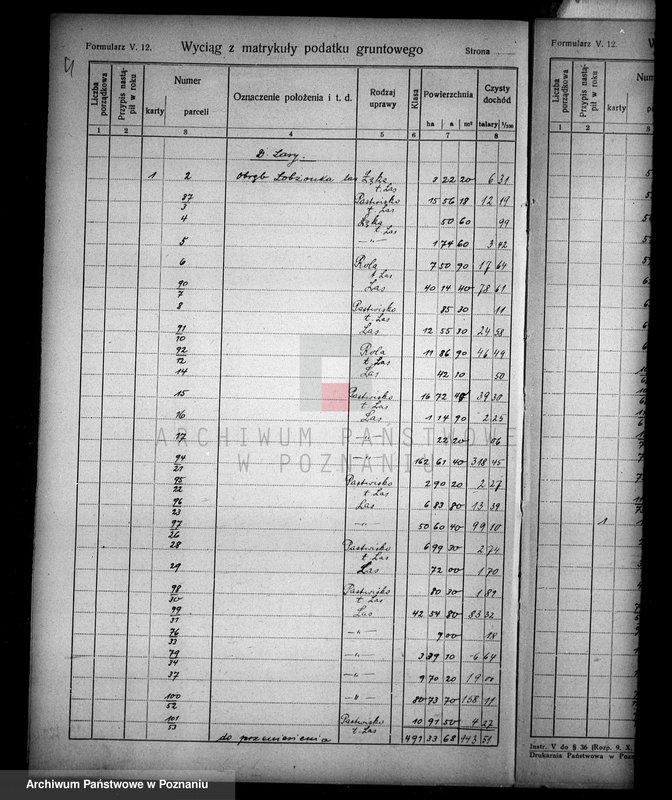 Formularz V. 12. Wyciąg z matrykuły podatku gruntowego Strona
Liczba porządkowa Przypis nastąpił w roku Numer karty parceli Oznaczenie położenia i t. d. Rodzaj uprawy Klasa Powierzchnia ha a m² Czysty dochód talary 1/100
1 2 3 4 5 6 7 8
D. Lasy.
1 2 Obręb Lobżonka las Łąka 3 22 20 6 31
t. Las
87/3 Pastwisko 15 56 18 12 19
t. Las
4 Łąka 50 60 99
t. Las
5 —"— 1 74 60 3 42
6 Rola 7 50 90 17 64
t. Las
90/7 Las 40 14 40 78 61
8 Pastwisko 85 30 11
t. Las
91/10 Las 12 55 30 24 58
92/12 Rola 11 86 90 46 49
t. Las
14 Las 42 10 50
15 Pastwisko 16 72 48 39 30
t. Las
16 Las 1 14 90 2 25
17 —"— 22 20 86
94/21 —"— 162 61 40 318 45
95/22 Pastwisko 2 90 20 2 27
t. Las
96/23 Las 6 83 80 13 39
97/26 —"— 50 60 40 99 10
28 Pastwisko 6 99 30 2 74
t. Las
29 Las 72 00 1 70
98/30 Pastwisko 80 30 1 89
t. Las
99/31 Las 42 54 80 83 32
76/33 —"— 9 00 18
79/34 —"— 3 39 10 6 64
37 9 70 20 19 00
100/52 —"— 80 73 70 158 11
101/53 Pastwisko 10 91 50 4 27
t. Las
do przeniesienia 491 33 68 943 51
ARCHIWUM PAŃSTWOWE
W POZNANIU
Formularz V. 12. W
Liczba porządkowa Przypis nastąpił w roku Num
karty parceli
1 2 3
1
Instr. V do § 36 (Rozp. 9. X.
Drukarnia Państwowa w Poz
Archiwum Państwowe w Poznaniu